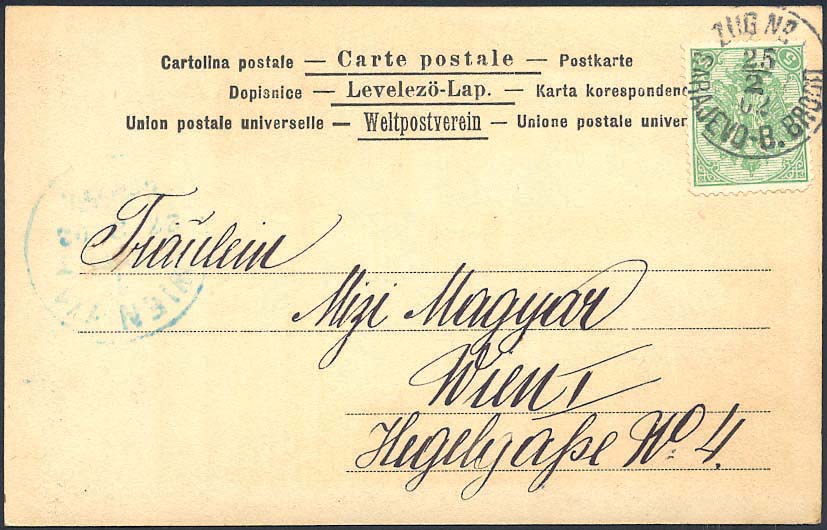 Cartolina postale — Carte postale — Postkarte
Dopisnice — Levelező-Lap. — Karta korespondenc
Union postale universelle — Weltpostverein — Unione postale univer
ZUG No
25
2
02
SARAJEVO-B. BROD
5
WIEN 1/1
27
Fräulein
Mizi Magyár
Wien 1
Hegelgaße No 4.